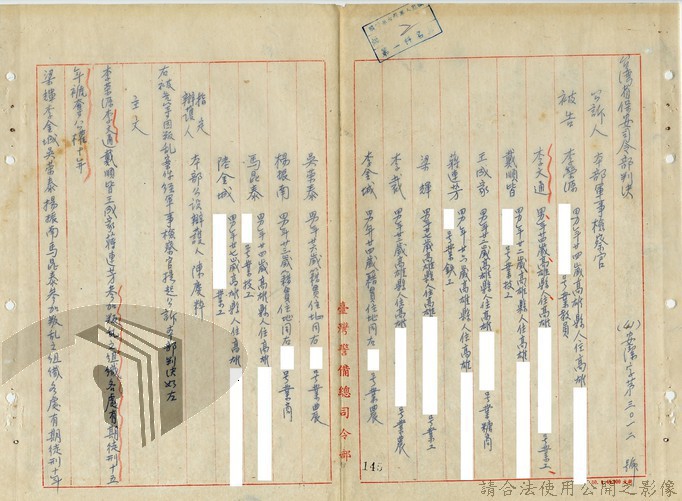 台灣省保安司令部判決
(41)安潔字第三〇一二號
公訴人 本部軍事檢察官
被告 李榮源 男年廿四歲高雄縣人住高雄 號業教員
李文通 男年廿四歲高雄縣人住高雄 號業工
戴順皆 男年廿二歲高雄縣人住高雄 號業工
王成家 男年廿二歲高雄縣人住高雄 號業糖商
蔣連芳 男年廿六歲高雄縣人住高雄 號業鉄工
梁輝 男年廿七歲高雄縣人住高雄 號業工
李戴 男年廿四歲高雄縣人住高雄 號業農
李金城 男年廿四歲籍貫住高雄 號業農
吳榮泰 男年廿六歲籍貫住地同右 號業農
楊振南 男年廿三歲籍貫住地同右 號業商
馬昆泰 男年廿四歲高雄縣人住高雄 號業技工
陸金城 男年廿七歲高雄縣人住高雄 號業工
指定辯護人 本部公設辯護人陳慶粹
右被告等因叛乱案件經軍事檢察官提起公訴本部判決如左
主文
李榮源李文通戴順皆王成家蔣連芳參加叛乱之組織各處有期徒刑十五
年褫奪公權十年
梁輝李金城吳榮泰楊振南馬昆泰參加叛乱之組織各處有期徒刑十年
臺灣警備總司令部
145
第一科
請合法使用公開之影像